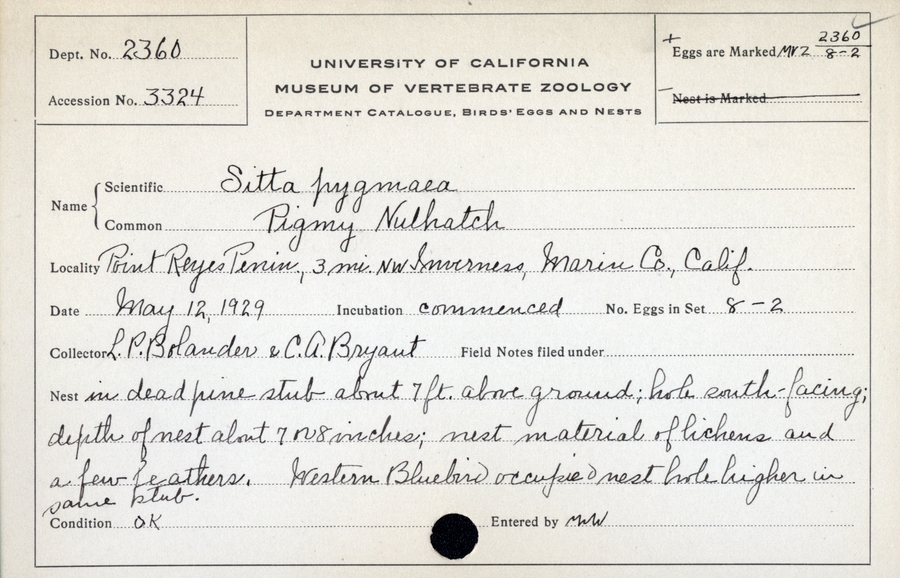 Dept. No. 2360
Accession No. 3324
UNIVERSITY OF CALIFORNIA
MUSEUM OF VERTEBRATE ZOOLOGY
DEPARTMENT CATALOGUE, BIRDS' EGGS AND NESTS
+ Eggs are Marked MVZ 2360 / 8-2
- Nest is Marked
Name
Scientific Sitta pygmaea
Common Pigmy Nuthatch
Locality Point Reyes Penin., 3 mi. NW Inverness, Marin Co., Calif.
Date May 12, 1929 Incubation commenced No. Eggs in Set 8-2
Collector L. P. Bolander & C. A. Bryant Field Notes filed under
Nest in dead pine stub about 7 ft. above ground; hole south-facing;
depth of nest about 7 or 8 inches; nest material of lichens and
a few feathers. Western Bluebird occupied nest hole higher in
same stub.
Condition OK Entered by